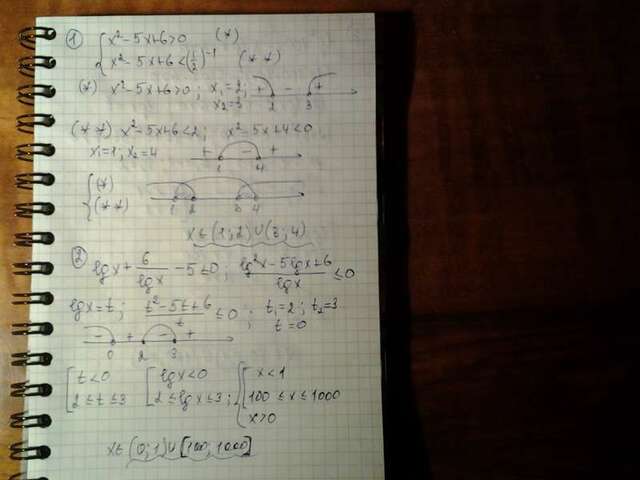 1
{ x²-5x+6>0 (*)
x²-5x+6<(1/2)⁻¹ (**)
(*) x²-5x+6>0; x₁=2; x₂=3 + - + 2 3
(**) x²-5x+6<2; x²-5x+4<0
x₁=1; x₂=4 + - + 1 4
{ (*)
(**) 1 2 3 4
x∈(1;2)∪(3;4)
2
lgx + 6/lgx - 5≤0; (lg²x-5lgx+6)/lgx ≤0
lgx=t; (t²-5t+6)/t ≤0; t₁=2; t₂=3
t=0
- + - + 0 2 3
[ t<0 [ lgx<0 { [ x<1
2≤t≤3 2≤lgx≤3; 100≤x≤1000
x>0
x∈(0;1)∪[100;1000]